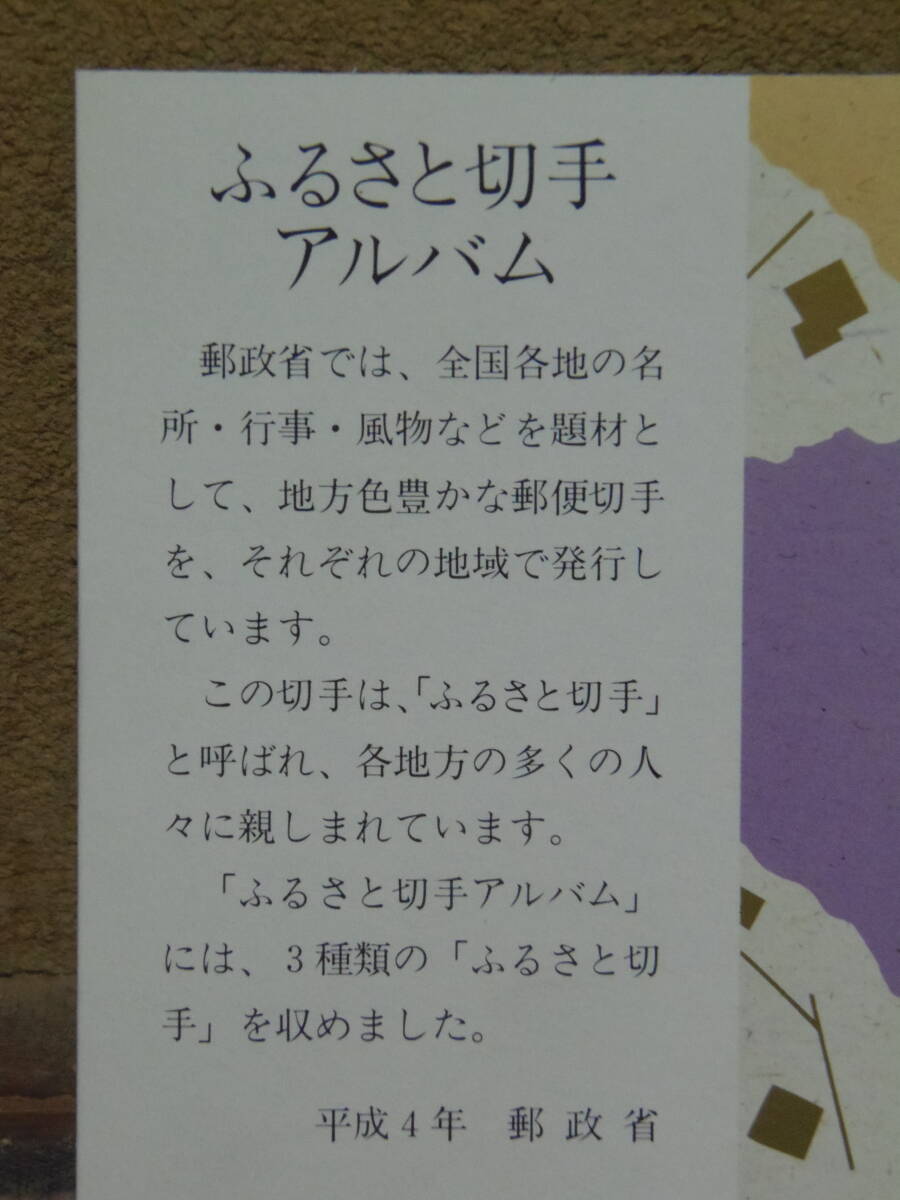 ふるさと切手
アルバム
郵政省では、全国各地の名
所・行事・風物などを題材と
して、地方色豊かな郵便切手
を、それぞれの地域で発行し
ています。
この切手は、「ふるさと切手」
と呼ばれ、各地方の多くの人
々に親しまれています。
「ふるさと切手アルバム」
には、3種類の「ふるさと切
手」を収めました。
平成4年　郵政省